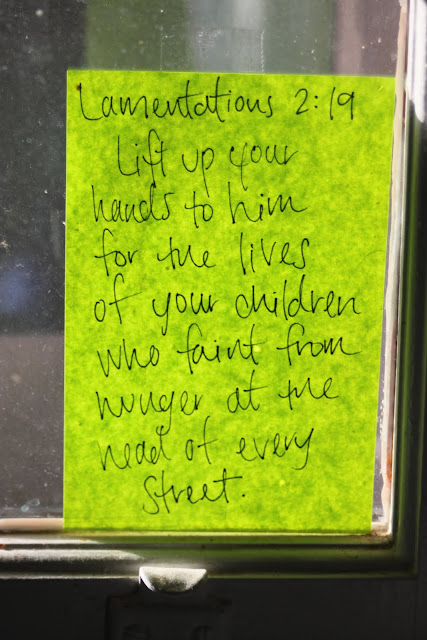 Lamentations 2:19
Lift up your
hands to him
for the lives
of your children
who faint from
hunger at the
head of every
street.